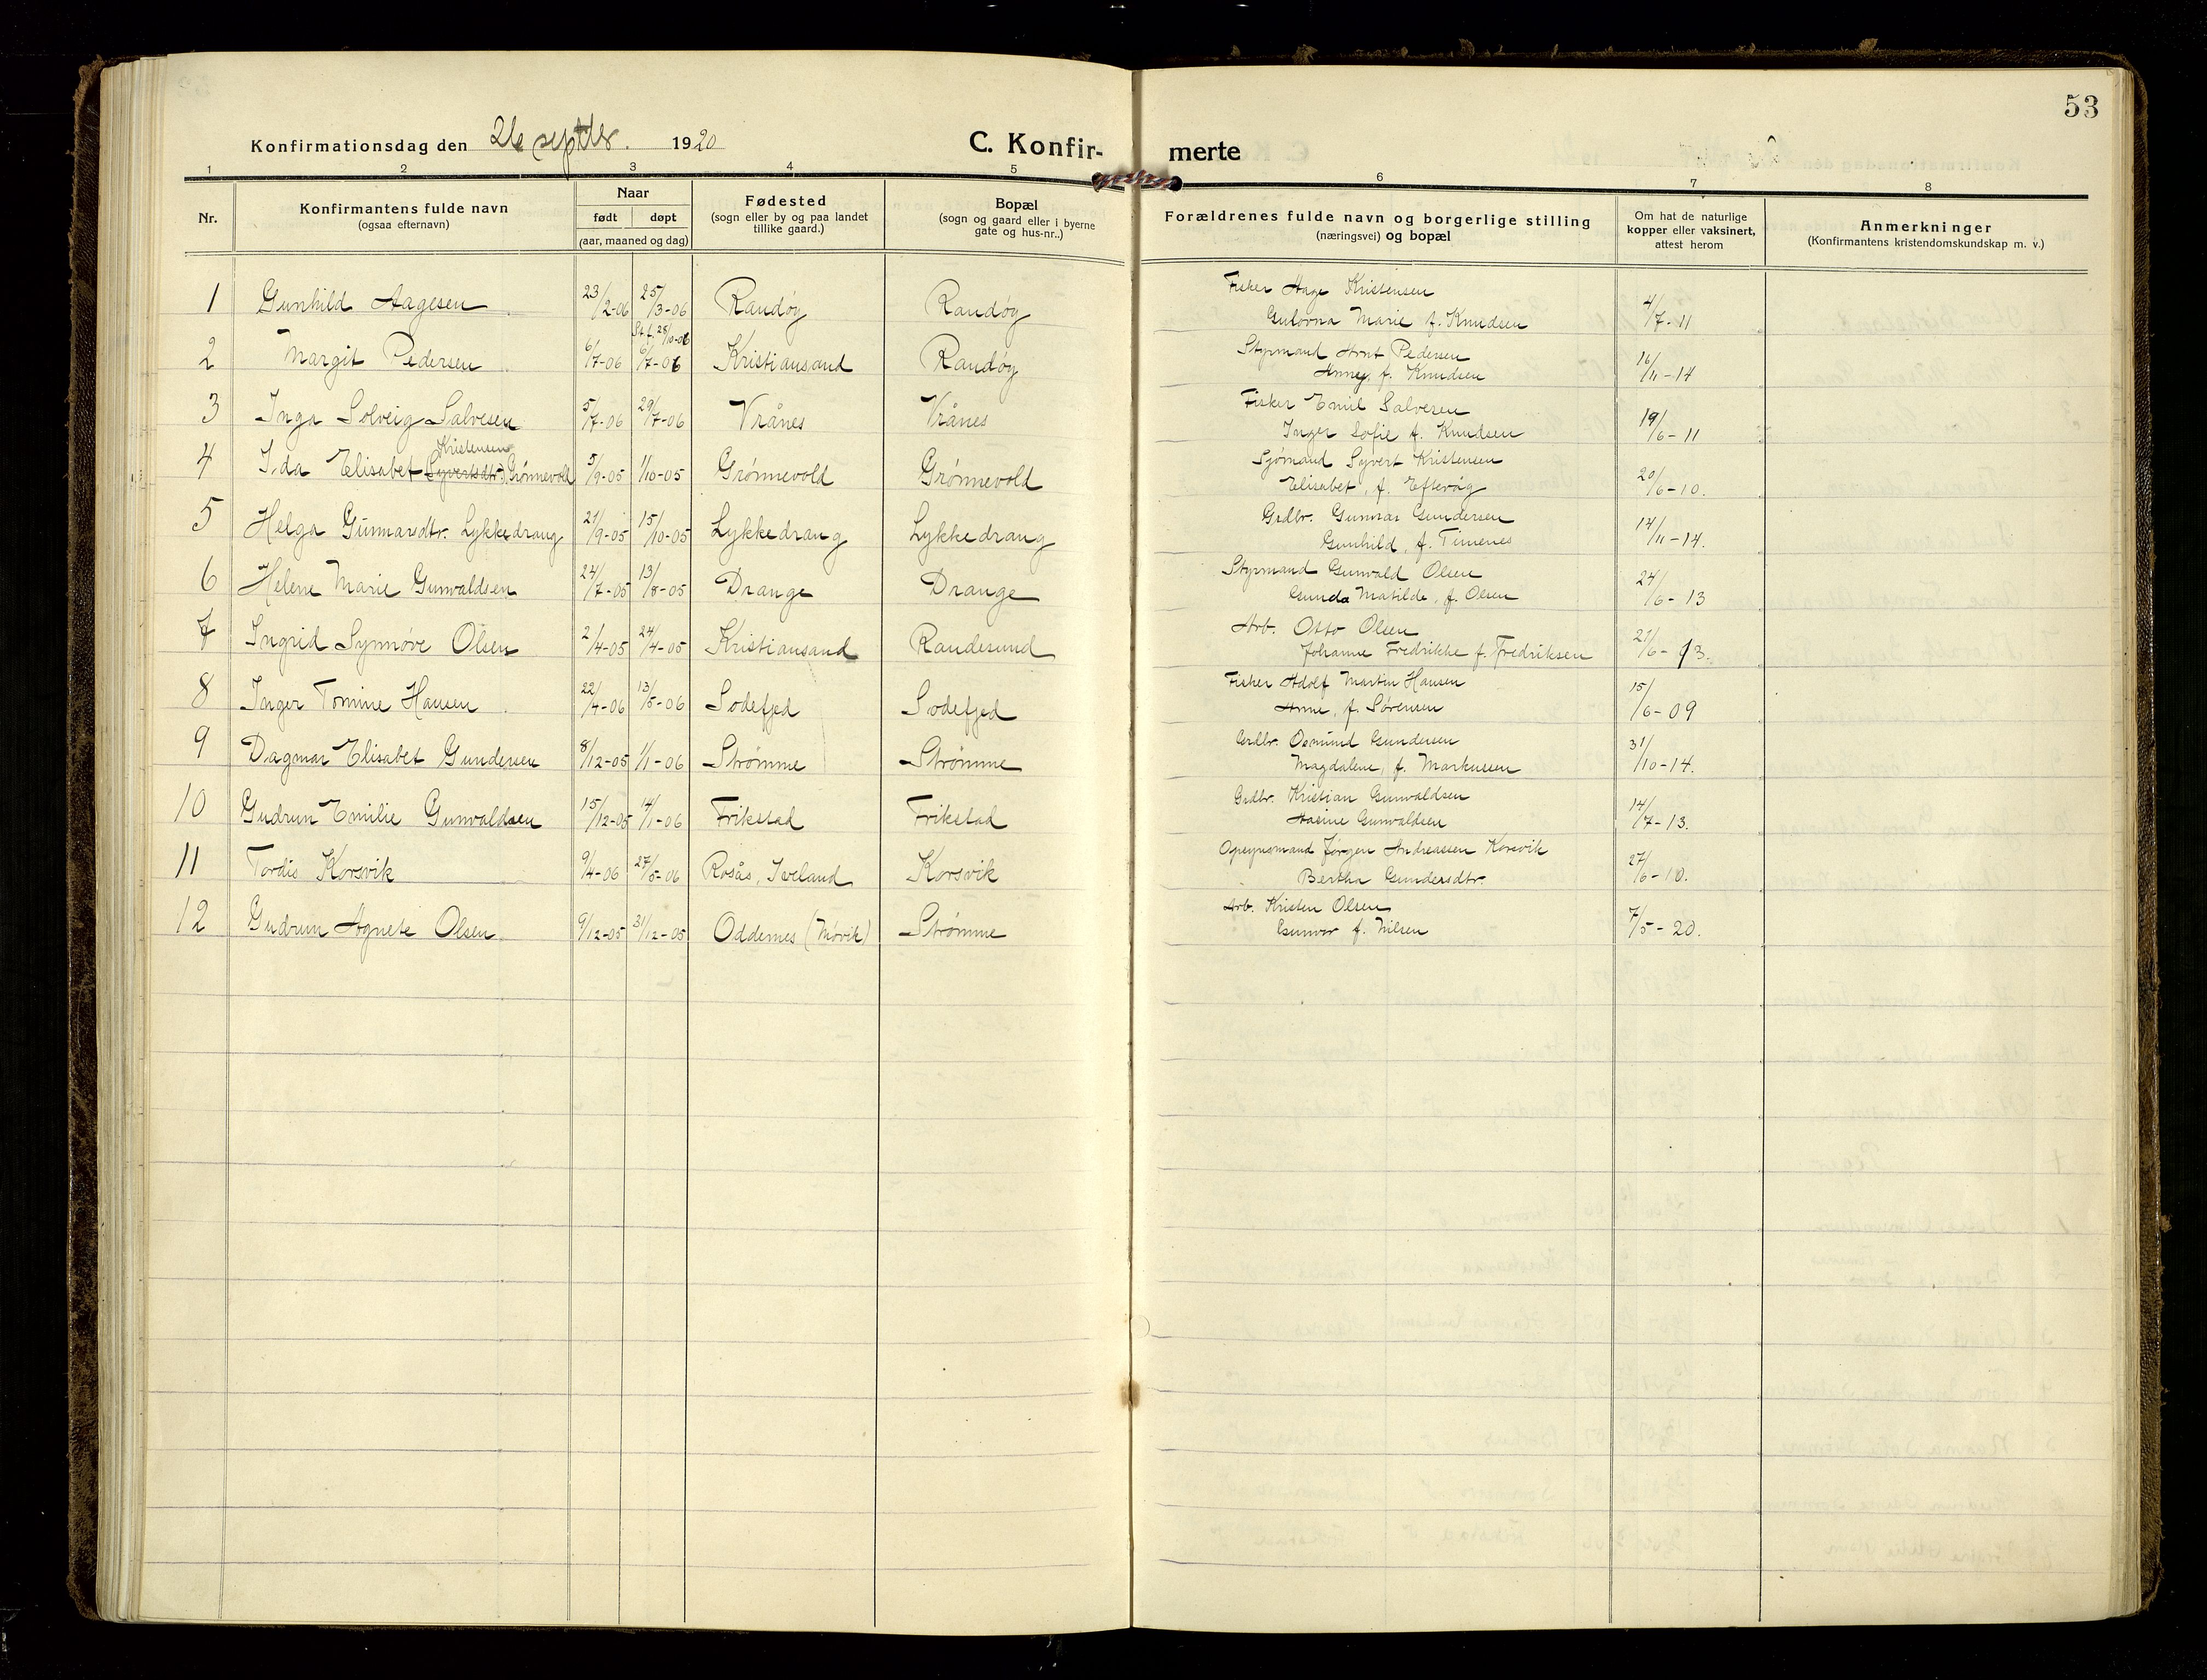 53
Konfirmationsdag den 26 septbr. 1920
C. Konfir-
merte
1 2 3 4 5 6 7 8
Nr.
Konfirmantens fulde navn
(ogsaa efternavn)
Naar
født døpt
(aar, maaned og dag)
Fødested
(sogn eller by og paa landet
tillike gaard.)
Bopæl
(sogn og gaard eller i byerne
gate og hus-nr..)
Forældrenes fulde navn og borgerlige stilling
(næringsvei) og bopæl
Om hat de naturlige
kopper eller vaksinert,
attest herom
Anmerkninger
(Konfirmantens kristendomskundskap m. v.)
1 Gunhild Aagesen 23/2-06 25/3-06 Randøy Randøy Fisker Aage Kristensen 4/7-11
Gulovna Marie f. Knudsen
St.f. 28/10-06
2 Margit Pedersen 6/7-06 6/7-06 Kristiansand Randøy Styrmand Arnt Pedersen 16/11-14
Anney, f. Knudsen
3 Inga Solveig Salvesen 5/7-06 29/7-06 Vrånes Vrånes Fisker Emil Salvesen 19/6-11
Inger Sofie f. Knudsen
Kristensen
4 Ida Elisabet Syvertsdtr. Grønnevold 5/9-05 1/10-05 Grønnevold Grønnevold Sjømand Syvert Kristensen 20/6-10.
Elisabet, f. Eftevåg
5 Helga Gunnarsdtr. Lykkedrang 21/9-05 15/10-05 Lykkedrang Lykkedrang Grdbr. Gunnar Gundersen 14/11-14.
Gunhild, f. Timenes
6 Helene Marie Gunvaldsen 24/7-05 13/8-05 Drange Drange Styrmand Gunvald Olsen 24/6-13
Gunda Matilde, f. Olsen
7 Ingrid Synnøve Olsen 2/4-05 24/4-05 Kristiansand Randesund Arb. Otto Olsen 21/6-13.
Johanne Fredrikke f. Fredriksen
8 Inger Tomine Hansen 22/4-06 13/5-06 Sodefjed Sodefjed Fisker Adolf Martin Hansen 15/6-09
Anne, f. Sørensen
9 Dagmar Elisabet Gundersen 8/12-05 1/1-06 Strømme Strømme Grdbr. Osmund Gundersen 31/10-14.
Magdalene, f. Markussen
10 Gudrun Emilie Gunvaldsen 15/12-05 14/1-06 Frikstad Frikstad Grdbr. Kristian Gunvaldsen 14/7-13.
Hasine Gunvaldsen
11 Tordis Korsvik 9/4-06 27/5-06 Rosås, Iveland Korsvik Opsynsmand Jørgen Andreassen Korsvik 27/6-10.
Bertha Gundersdtr.
12 Gudrun Agnete Olsen 9/12-05 31/12-05 Oddernes (Møvik) Strømme Arb. Kristen Olsen 7/5-20.
Gunvor f. Nilsen